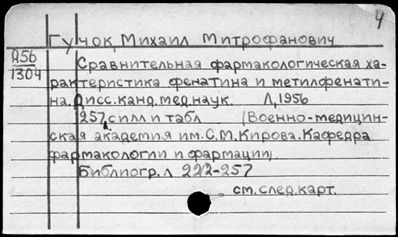 4
Гучок, Михаил Митрофанович
Д56
1304
Сравнительная фармакологическая ха-
рактеристика фенатина и метилфенати-
на. Дисс. канд. мед. наук. Л, 1956
257 с илл и табл (Военно-медицин-
ская академия им. С.М. Кирова. Кафедра
фармакологии и фармации).
Библиогр. л 222-257
см. след. карт.